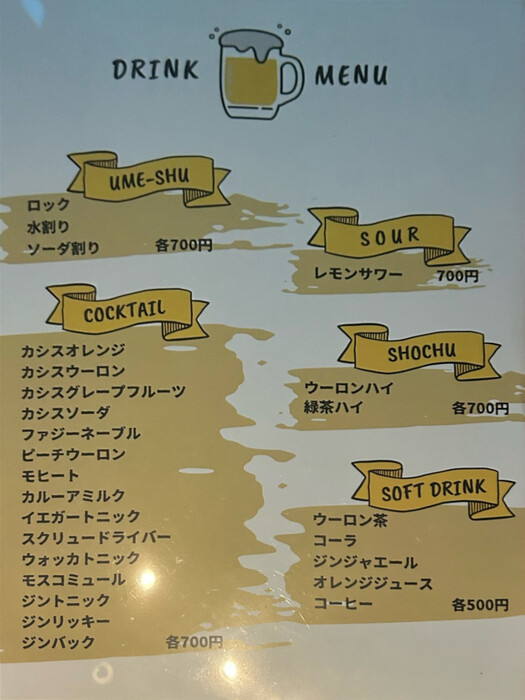 DRINK MENU
UME-SHU
ロック
水割り
ソーダ割り 各700円
SOUR
レモンサワー 700円
COCKTAIL
カシスオレンジ
カシスウーロン
カシスグレープフルーツ
カシスソーダ
ファジーネーブル
ピーチウーロン
モヒート
カルーアミルク
イエガートニック
スクリュードライバー
ウォッカトニック
モスコミュール
ジントニック
ジンリッキー
ジンバック 各700円
SHOCHU
ウーロンハイ
緑茶ハイ 各700円
SOFT DRINK
ウーロン茶
コーラ
ジンジャエール
オレンジジュース
コーヒー 各500円